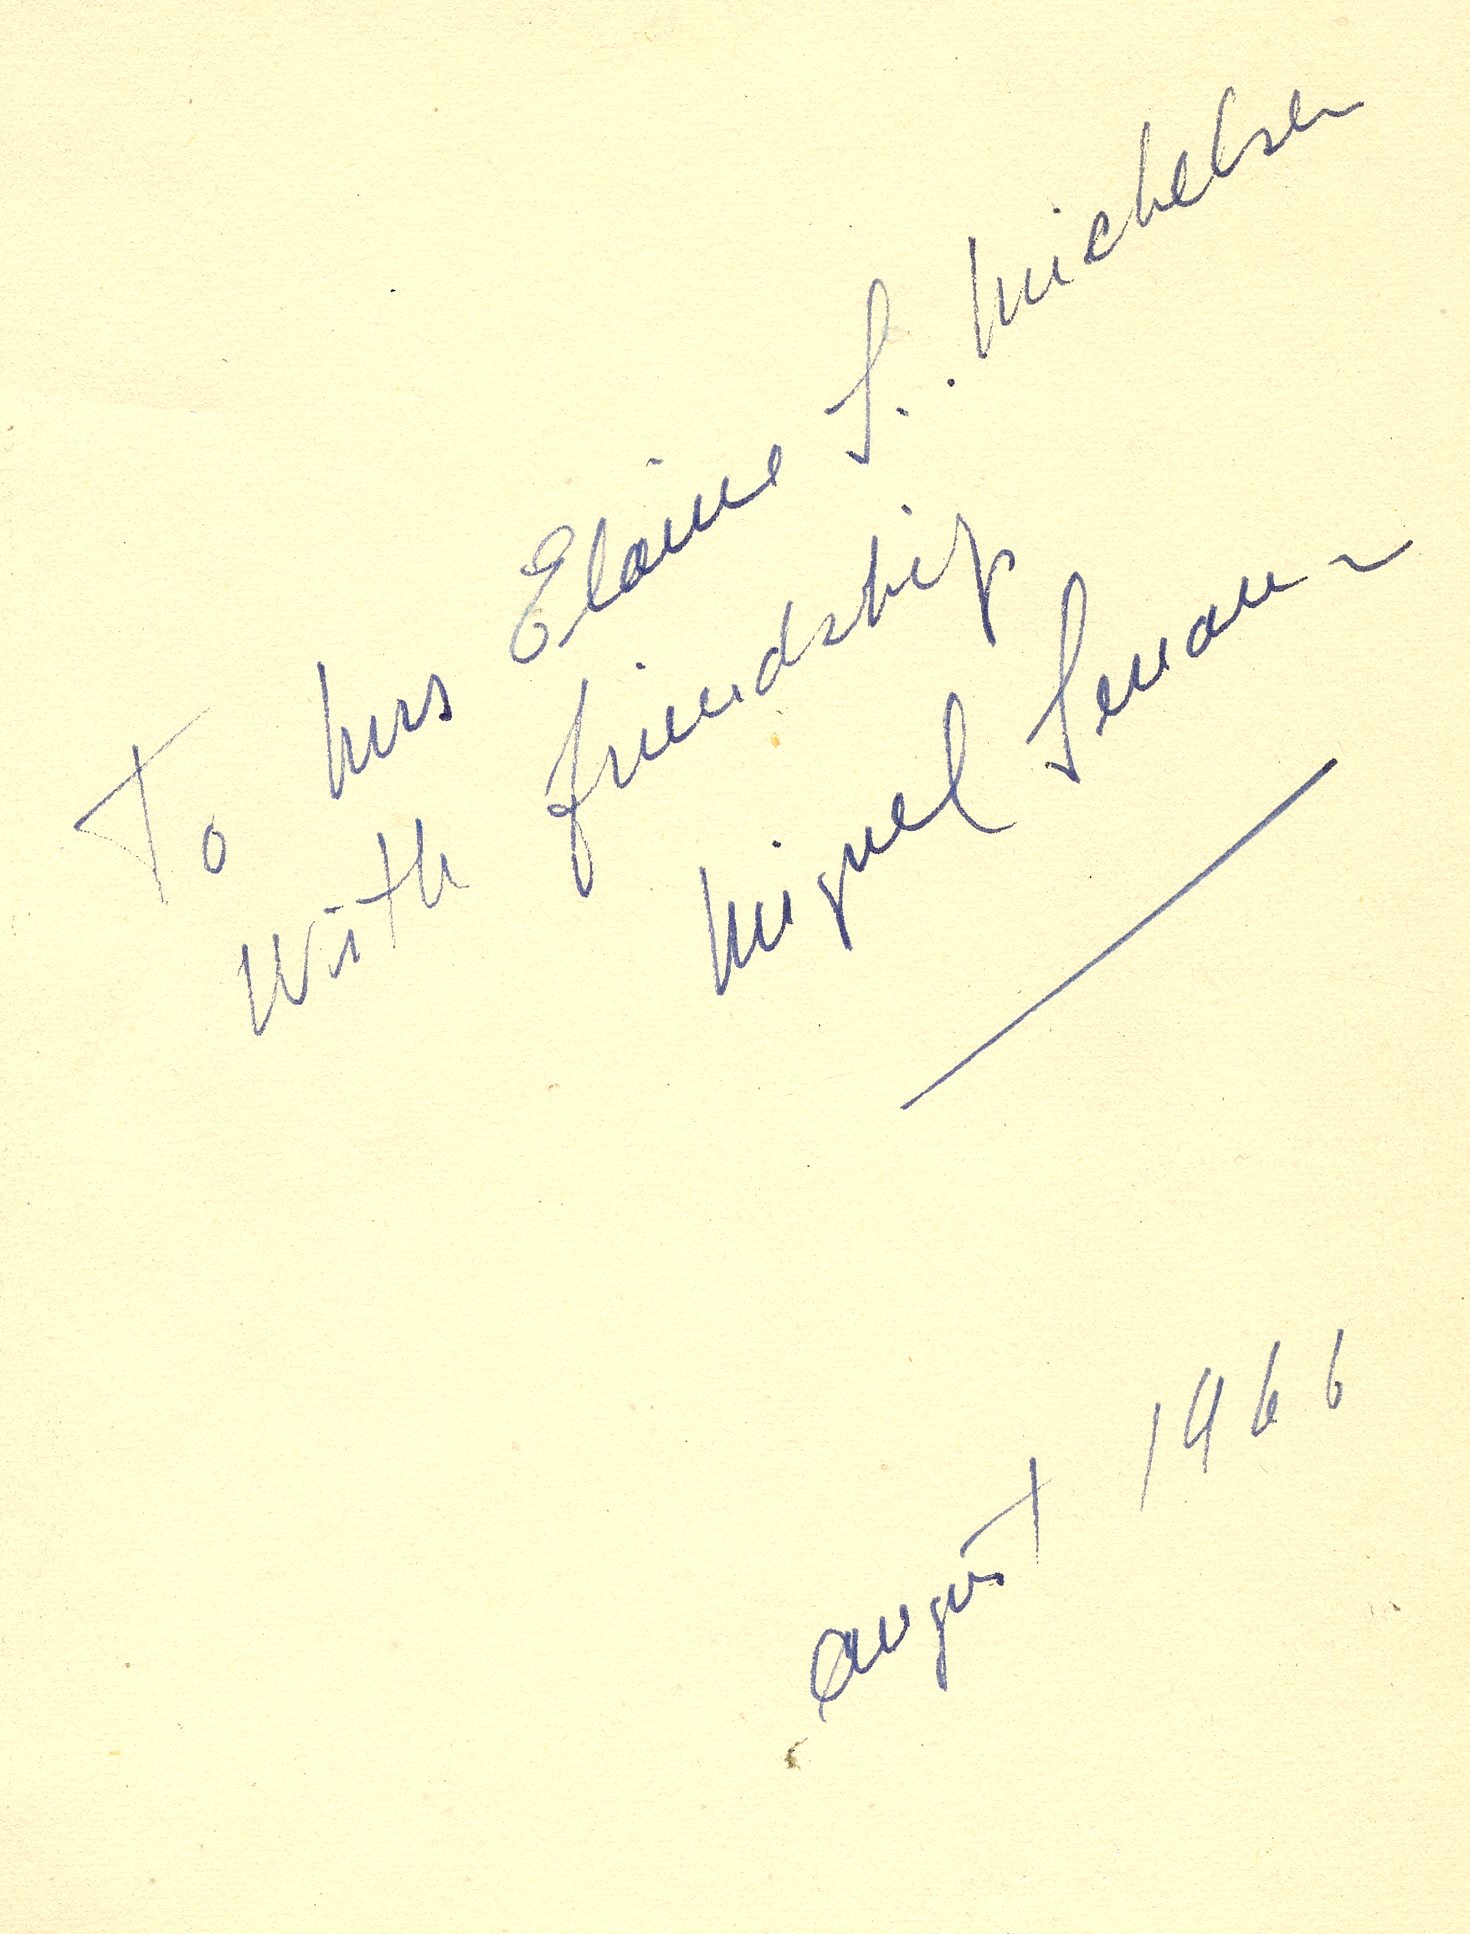 To Mrs Elaine S. Michelsen
With friendship
Miguel Serrano
August 1966